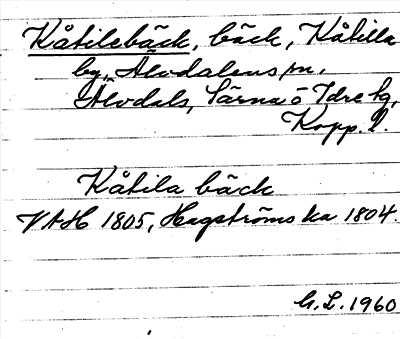 Kåtilebäck, bäck, Kåtilla
by, Älvdalens sn,
Älvdals, Särna o Idre tg,
Kopp. l.
Kåtila bäck
VAH 1805, Hagströms ka 1804.
G.L. 1960